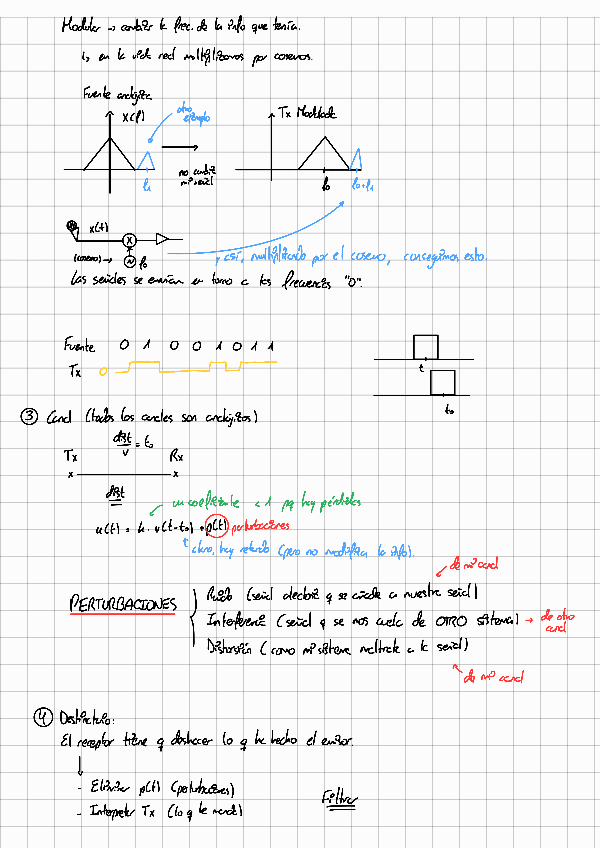 Modular → cambiar la frec. de la info que tenía.
↳ en la vida real multiplicamos por cosenos.
Fuente analógica
X(f)
otro ejemplo
f₁
no cambia mi señal
Tx Modulada
f₀
f₀+f₁
x(t)
X
(coseno) →
f₀
así, multiplicando por el coseno, conseguimos esto.
Las señales se envían en torno a las frecuencias "0".
Fuente 0 1 0 0 1 0 1 1
Tx 0
t
t₀
③ Canal (todos los canales son analógicos)
dist/v = t₀
Tx
Rx
x
x
dist
un coeficiente < 1 pq hay pérdidas
u(t) = k · v(t-t₀) + p(t) perturbaciones
claro, hay retardo (pero no modifica la info).
de mi canal
PERTURBACIONES
Ruido (señal aleatoria q se añade a nuestra señal)
Interferencia (señal q se nos cuela de OTRO sistema) → de otro canal
Distorsión (como mi sistema maltrata a la señal)
de mi canal
④ Destinatario:
El receptor tiene q deshacer lo q ha hecho el emisor.
- Eliminar p(t) (perturbaciones)
- Interpretar Tx (lo q le mandé)
Filtrar